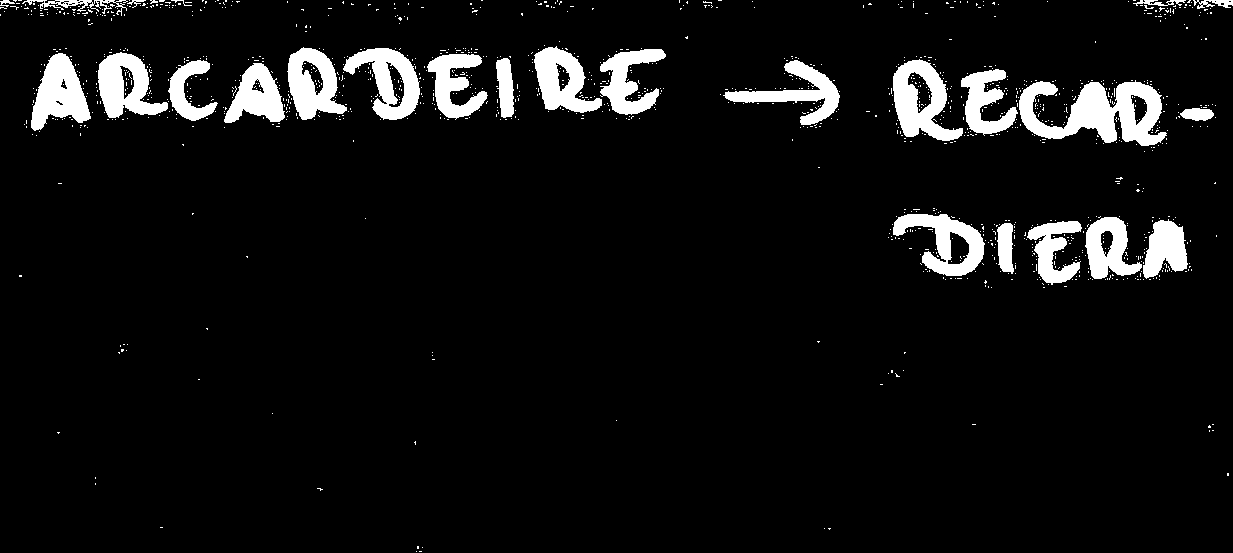 ARCARDEIRE → RECAR-
DIERA